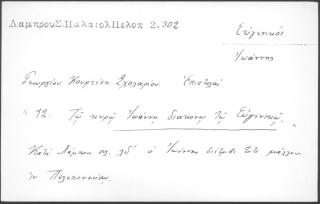 Λαμπρου Σ. Παλαιολ Πελοπ 2.302
Εὐγενικοί
Ἰωάννης
Γεωργίου Κουρτέση Σχολαρίου Ἐπιστολαί
" 12. Τῷ κυρῷ Ἰωάννῃ διακόνῳ τῷ Εὐγενικῷ.
Κατὰ Λάμπρον σελ. λδ' ὁ Ἰωάννης διέτριβε τότε μᾶλλον
ἐν Πελοποννήσῳ.